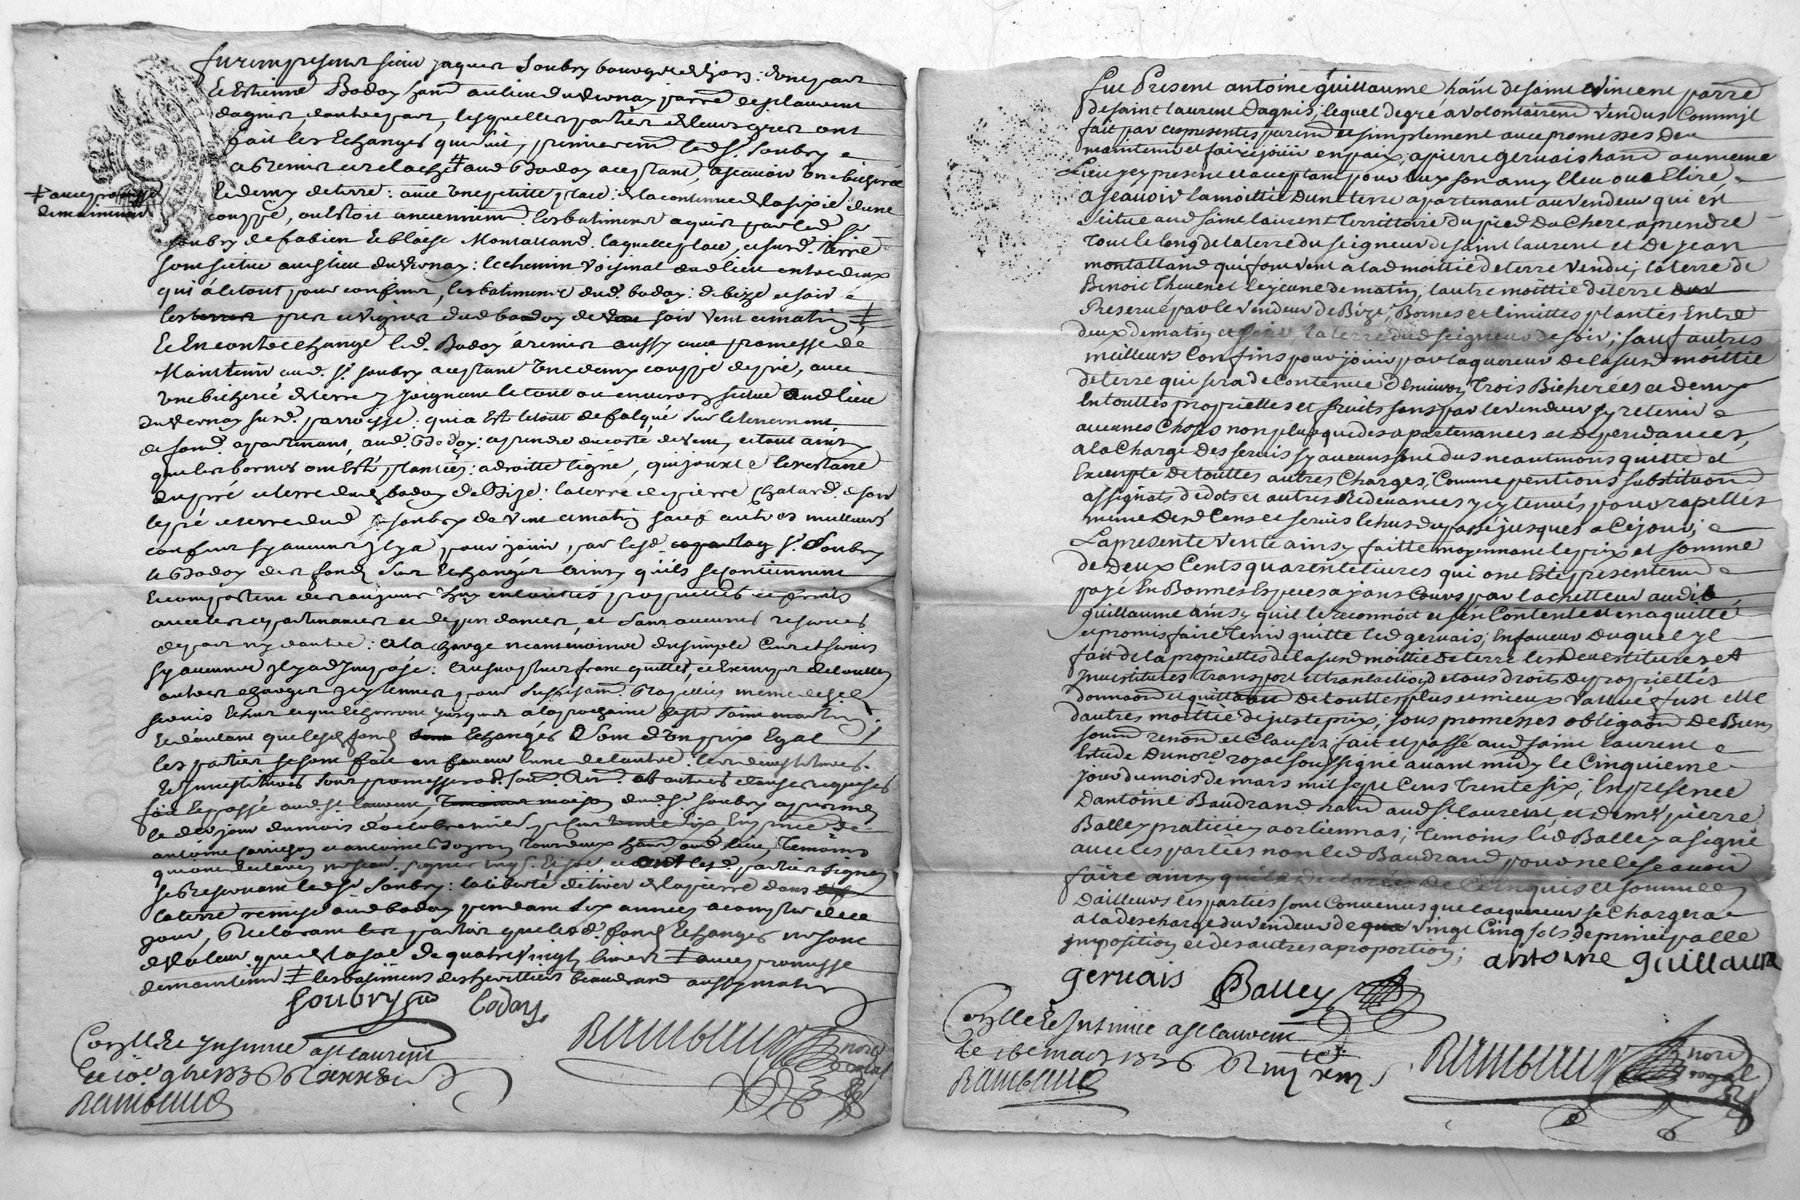 furent presents sieur jaques Soubry bourgois de Lyon : d'une part
et Estienne Baday hant au lieu du Vernay parr. de st laurent
dagnis, d'autre part, lesquelles parties de leurs gres ont
fait les Echanges qui suit, premierem. led. sr. Soubry
a Remis et relaché ‡ aud Baday aceptant, a scavoir une bicherée
‡ avec promesse
de maintenir
et demy de terre : avec une petitte place de la contenue de la sixie. d'une
couppé, ou étoit anciennem. les batiments aquis par led. sr.
Soubry de fabien et blaise Montalland. laquelle place, et susd. terre
sont scitue aud lieu du Vernay : le chemin voisinal dud lieu entre deux
qui a le tout pour confins, les batiments dud. baday : de bize et soir
pres et vigner dud baday de soir vent et matin ‡
Et En contrechange led. Baday a remis aussy avec promesse de
Maintenir aud. sr. Soubry aceptant une demy couppé de pré, avec
une bicherée de terre y joignant le tout ou environ scitue aud lieu
du Vernay susd. parroisse : qui a Esté le tout defalqué sur le tenement
de fond. apartenant, aud. Baday : a prendre du coté de vent, et tout ainsy
que les bornes ont Esté plantées : a droitte ligne, qui jouxte le restant
du pré et terre dud baday de Bize : la terre de pierre Chatard. de soir
le pré et terre dud sr Soubry de vent et matin sauf autres meilleurs
confins sy aucuns il y a pour jouir, par lesd. sr. Soubry
et Baday des fonds sus Echangés ainsy qu'ils se contiennent
et comportent des aujourd'huy en touttes proprietés et fruits
avec les apartenances et dependances, et sans aucunes reserves
de part ny d'autre : a la charge neantmoins du simple Cens et servis
sy aucuns il y a d'Imposé : au surplus franc quitte, et Exempt de touttes
autres charges
servis Echus et qui Echerront jusques a la prochaine feste saint martin ;
Et d'autant que lesd fonds Echangés sont d'un prix Egal
les parties se sont fait en faveur l'une de l'autre. les devestitures.
et Investitures sous promesses
fait et passé aud. st laurent, maison dud sr. Soubry apres midy
le dix jour du mois d'octobre mil
antoine et antoine temoins
qui ont declarés ne scavoir signer
se Reservant led sr. Soubry : la liberté de tirer de la pierre dans
la terre remise aud baday pendant six années a compter de ce
jour, declarant les parties que lesd. fonds Echangés ne sont
de valeur que de la so. de quatre vingts livres ‡ avec promesse
de maintenir ‡ les batiments des heritiers baudrand aussy matin
Soubry baday
Rambaud nore
royal
Conlle et Insinué a st laurent
Rambaud
Fut Present antoine guillaume hant de saint vincent parr.
de saint laurent dagnis, lequel de gré a volontairem. vendus Comm'il
fait par ces presentes purem. et simplement avec promesses de
maintenir et faire jouir en paix, a pierre gervais hant au meme
Lieu, jcy present et aceptant pour luy son amy Eleu ou a Elire
a sçavoir la moittie d'une terre apartenant au vendeur qui Est
scitue aud saint laurent Territoire du pied Du Chere a prendre
tout le long de la terre du seigneur de saint laurent et De jean
montalland qui font vent a lad moittie de terre vendue, la terre de
Benoit Thevenet le jeune de matin, l'autre moittie de terre
Preservé par le vendeur de Bize, Bornes et limittes plantés Entre
deux de matin et soir, la terre dud seigneur de soir ; sauf autres
meilleurs Confins pour jouir par laquereur De la susd moittie
de terre qui sera de contenue d'Environ Trois Bicherees et demy
En touttes proprietes et fruits sans par le vendeur s'y retenir
aucunes Choses non plus que des apartenances et dependances,
a la Charge des servis sy aucuns sont dus neantmoins quitte et
Exempte de touttes autres Charges, Comme pentions substitution
assignats de dots et autres Redevances y jcy tenues pour rapellés
meme Desd Cens et servis Echus du passé jusques a Ce jour ;
La presente vente ainsy faitte moyennant le prix et somme
de Deux Cents quarente livres qui ont Esté presentem
payé En Bonnes Especes ayans Cours par lachetteur audit
guillaume ainsy qu'il le reconnoit et s'en Contente et en a quitté
et promis faire Tenir quitte led gervais, En faveur Duquel Il
fait de la proprietté de la susd moittie de terre les Devestitures et
Investitures, transport et translation de tous droits De proprietés
donnaon et quittaon De touttes plus et mieux vallue fust Elle
d'autres moittie de juste prix, sous promesses obligaon De Biens
soum renon et Clauses, fait et passé aud saint laurent
Etude Du nore royal soussigné avant midy le Cinquieme
jour du mois de mars mil sept Cens Trente six, En presence
D'antoine Baudrand hant aud st laurent et De me pierre
Balley praticien a orliennas, temoins led Balley a signé
avec les parties non led Baudrand pour ne le scavoir
faire ainsy qu'il a Declaré De Ce Enquis et sommé
Dailleurs les parties sont Convenus que laquereur se Chargera
a la descharge du vendeur de vingt Cinq sols de principalle
imposition et des autres a proportion ; antoine guillaume
gervais Balley
Conlle et Insinué a st laurent
le 16e mars 1736
Rambaud
Rambaud nore
royal